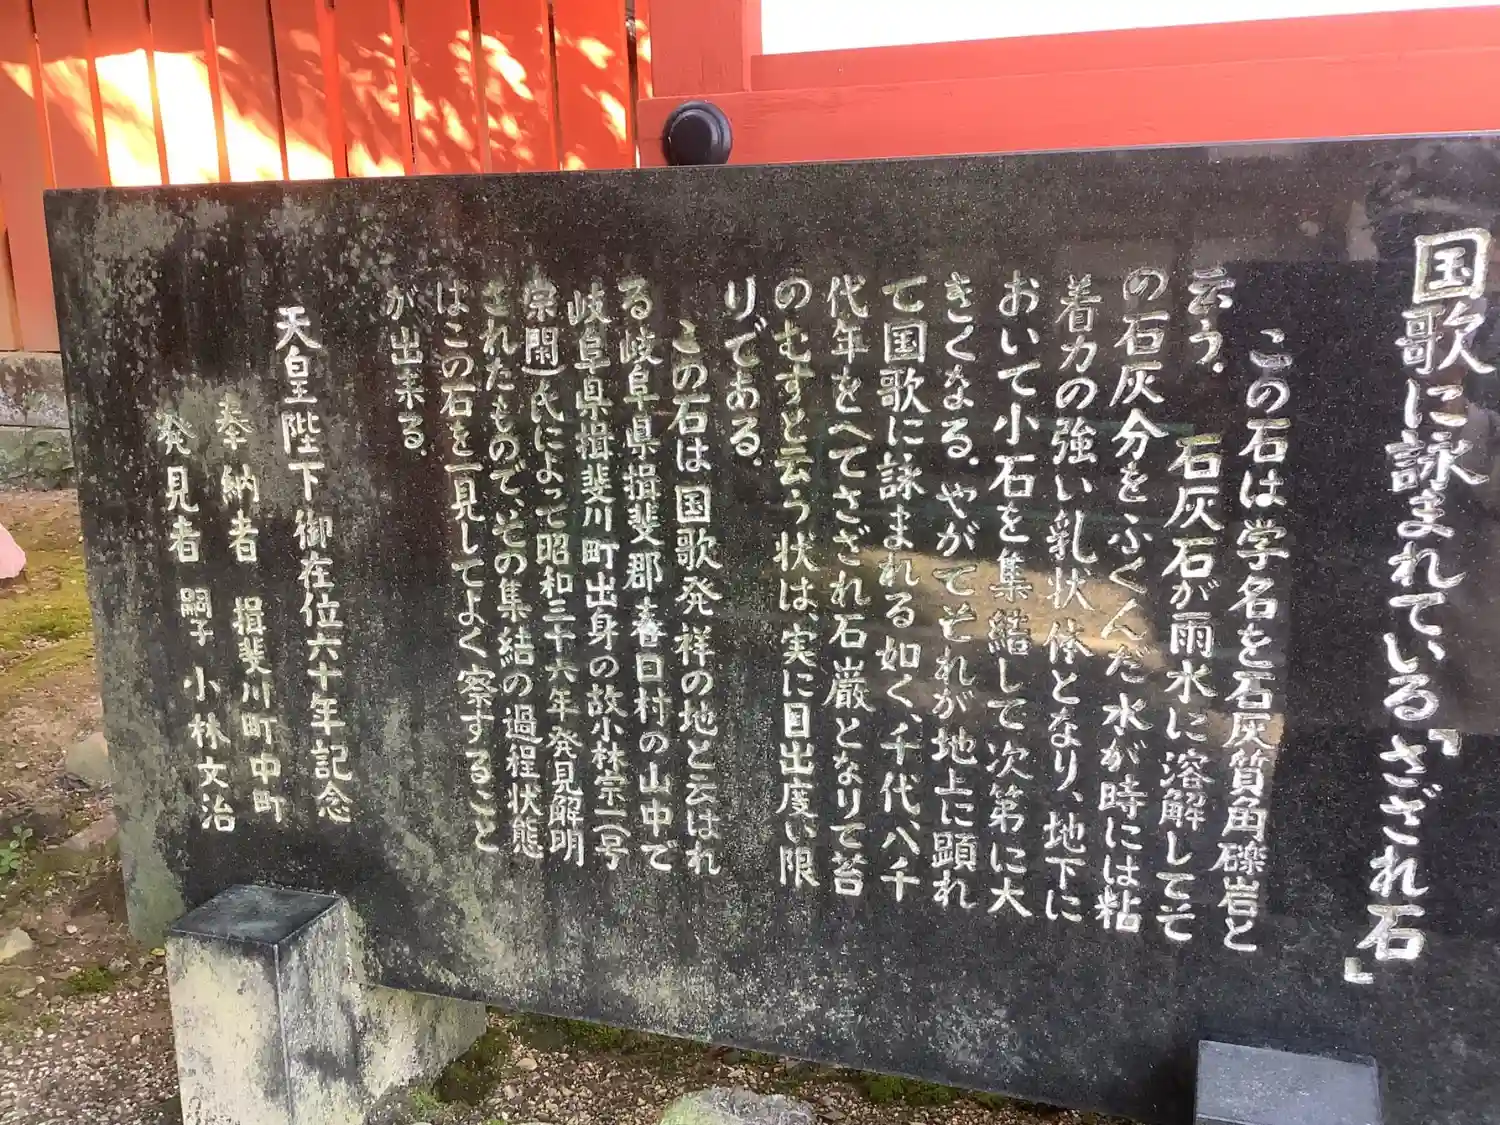 国歌に詠まれている『さざれ石』
この石は学名を石灰質角礫岩と
云う。石灰石が雨水に溶解してそ
の石灰分をふくんだ水が時には粘
着力の強い乳状体となり、地下に
おいて小石を集結して次第に大
きくなる。やがてそれが地上に顕れ
て国歌に詠まれる如く、千代、八千
代年をへてさざれ石巌となりて苔
のむすと云う状は、実に目出度い限
りである。
この石は国歌発祥の地と云はれ
る岐阜県揖斐郡春日村の山中で
岐阜県揖斐川町出身の故小林宗一（号
宗閑）氏によって昭和三十六年発見解明
されたもので、その集結の過程状態
はこの石を一見してよく察すること
が出来る。
天皇陛下御在位六十年記念
奉納者 揖斐川町中町
発見者 嗣子 小林文治